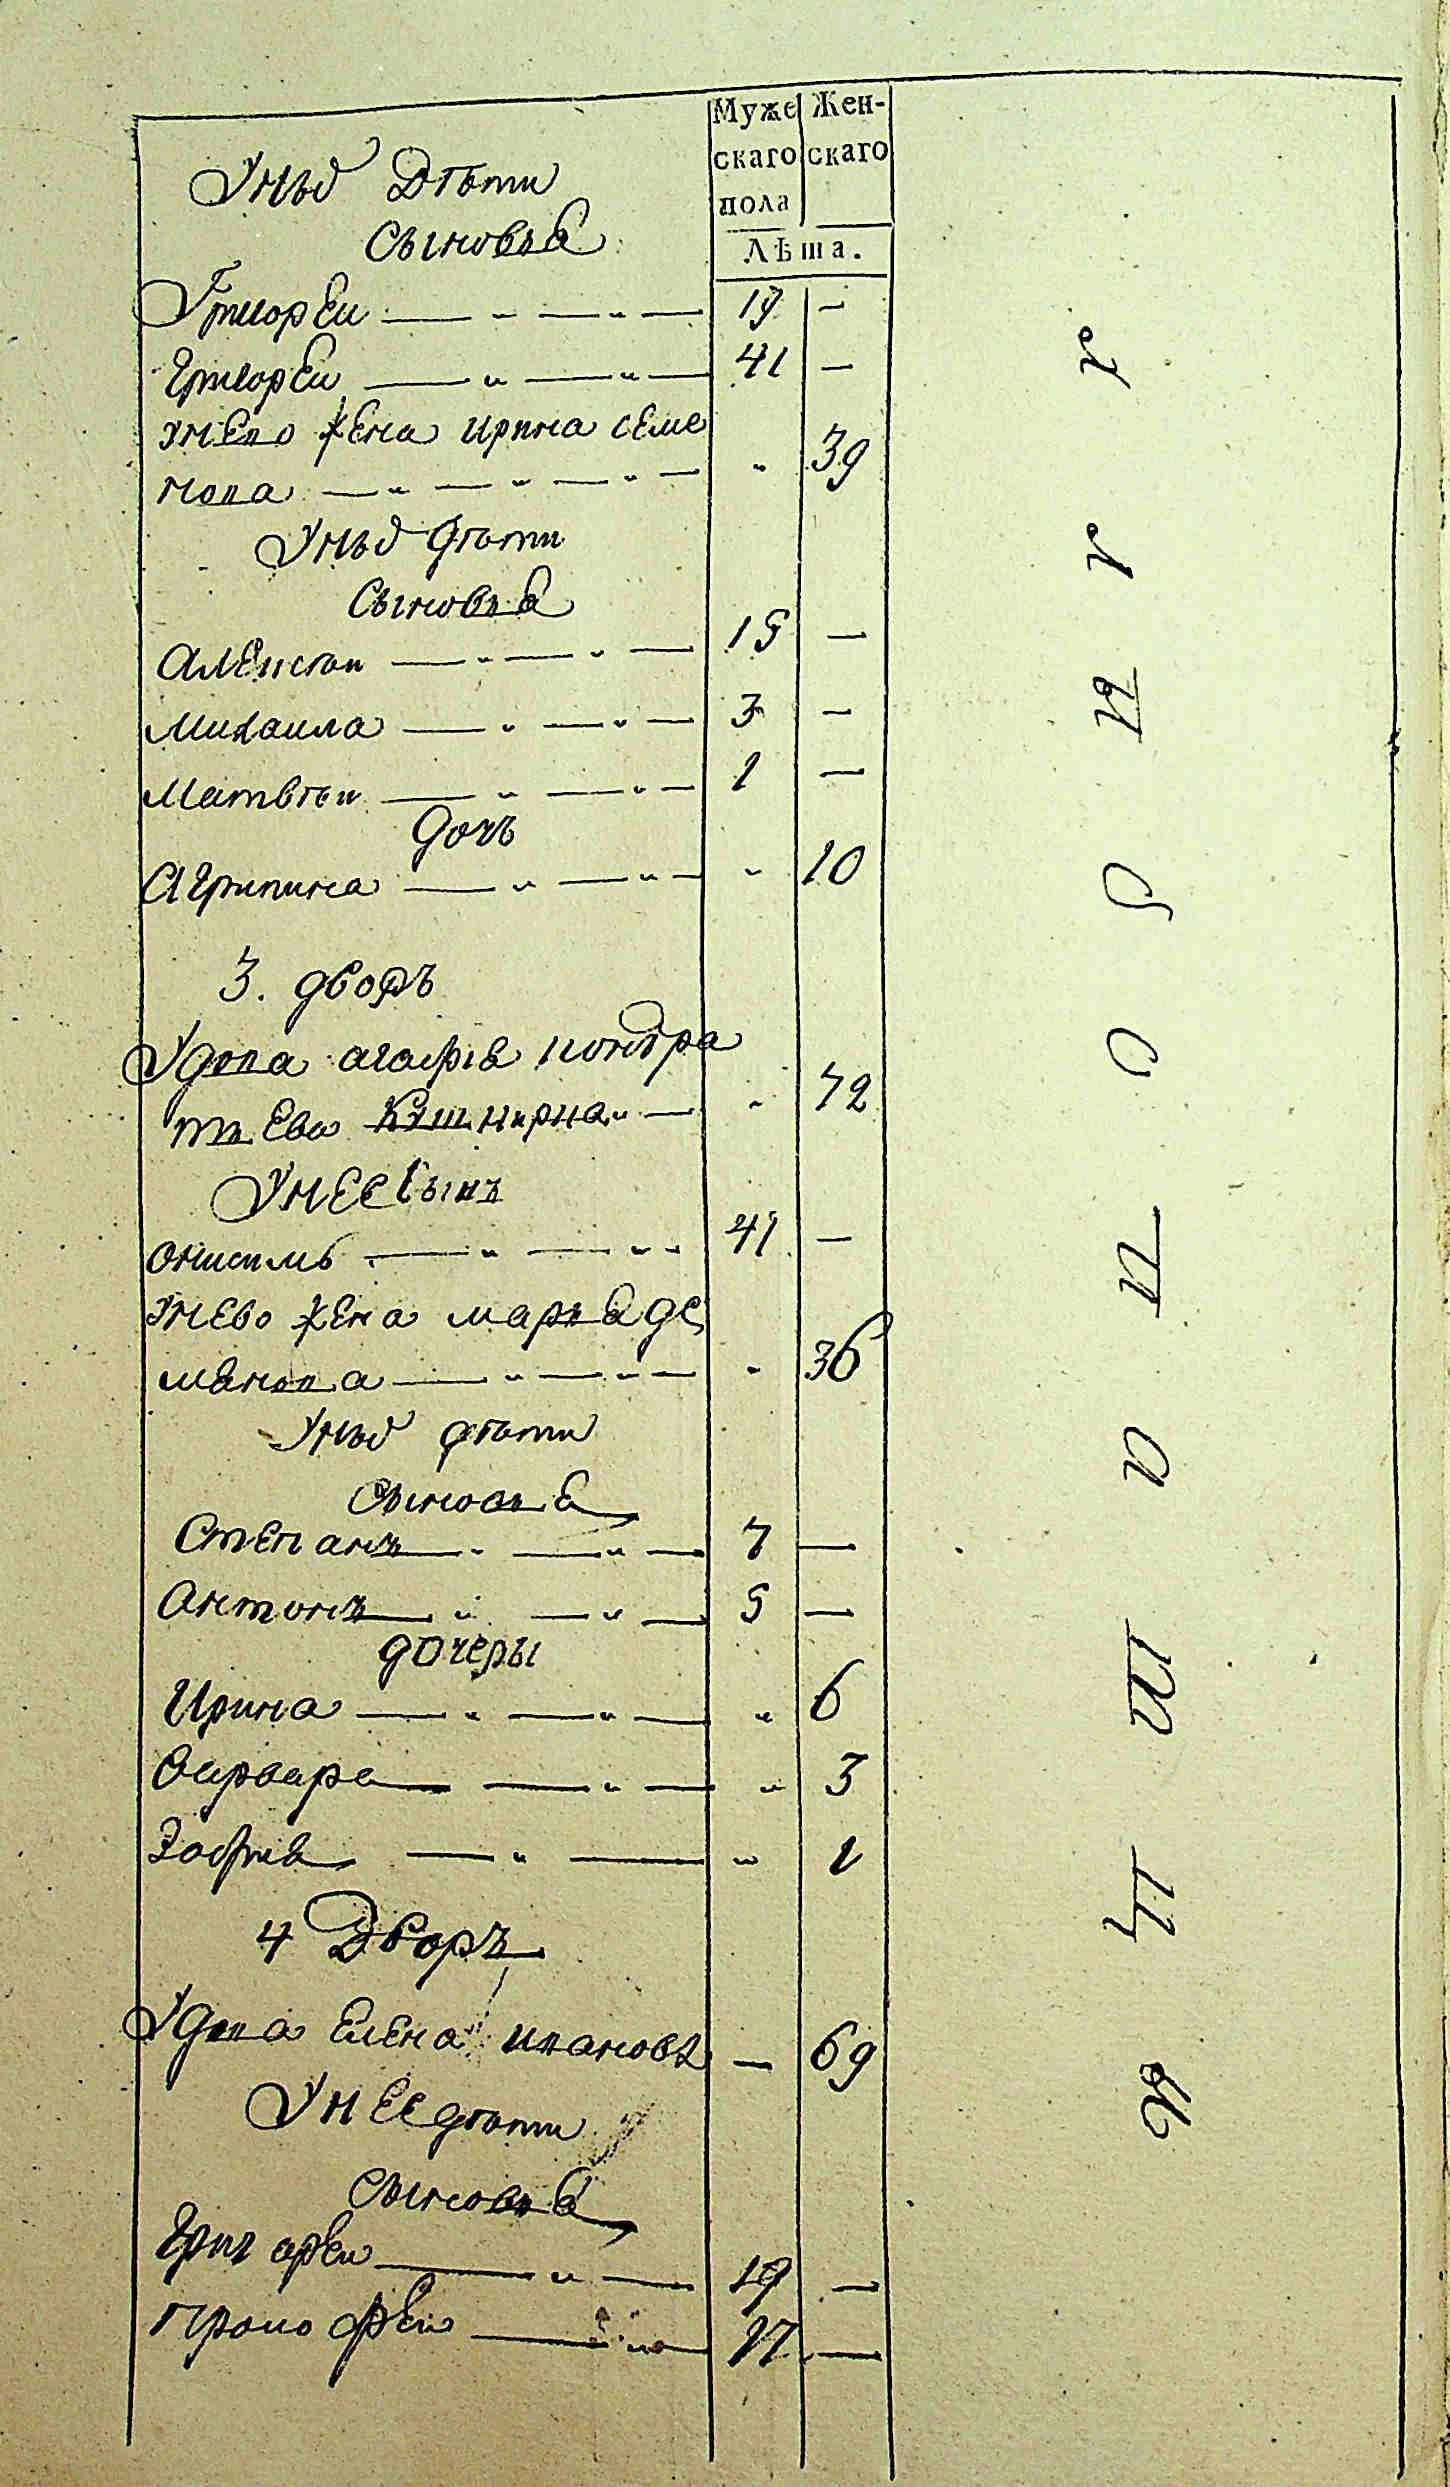 Муже Жен-
скаго скаго
пола
Лѣта.
Унихъ Дѣти
Сыновья
Григорей — „ — „ — 19 —
Григорей — „ — „ — 41 —
унево жена Ирина Семе
нова — „ — „ — „ — „ 39
Унихъ дѣти
Сыновья
Алексѣи — „ — „ — 15 —
Михаила — „ — „ — 3 —
Матвѣи — „ — „ — 1 —
дочь
Агрипина — „ — „ — „ 10
3. дворъ
Удова агафія кондра
тьева Кушнирна „ — „ 72
Унее Сынъ
Онисимъ — „ — „ 41 —
унево жена марья де
мянова — „ — „ — „ 36
Унихъ дѣти
Сыновья
Степанъ — „ — „ — 7 —
Антонъ — „ — „ — 5 —
дочеры
Ирина — „ — „ — „ 6
Варвара — — „ — „ 3
Зофия — „ — „ 1
4 Дворъ
Удова Елена иванова — 69
Унее дѣти
Сыновья
Григорей — „ — 19 —
Прокофей — „ — 17 —